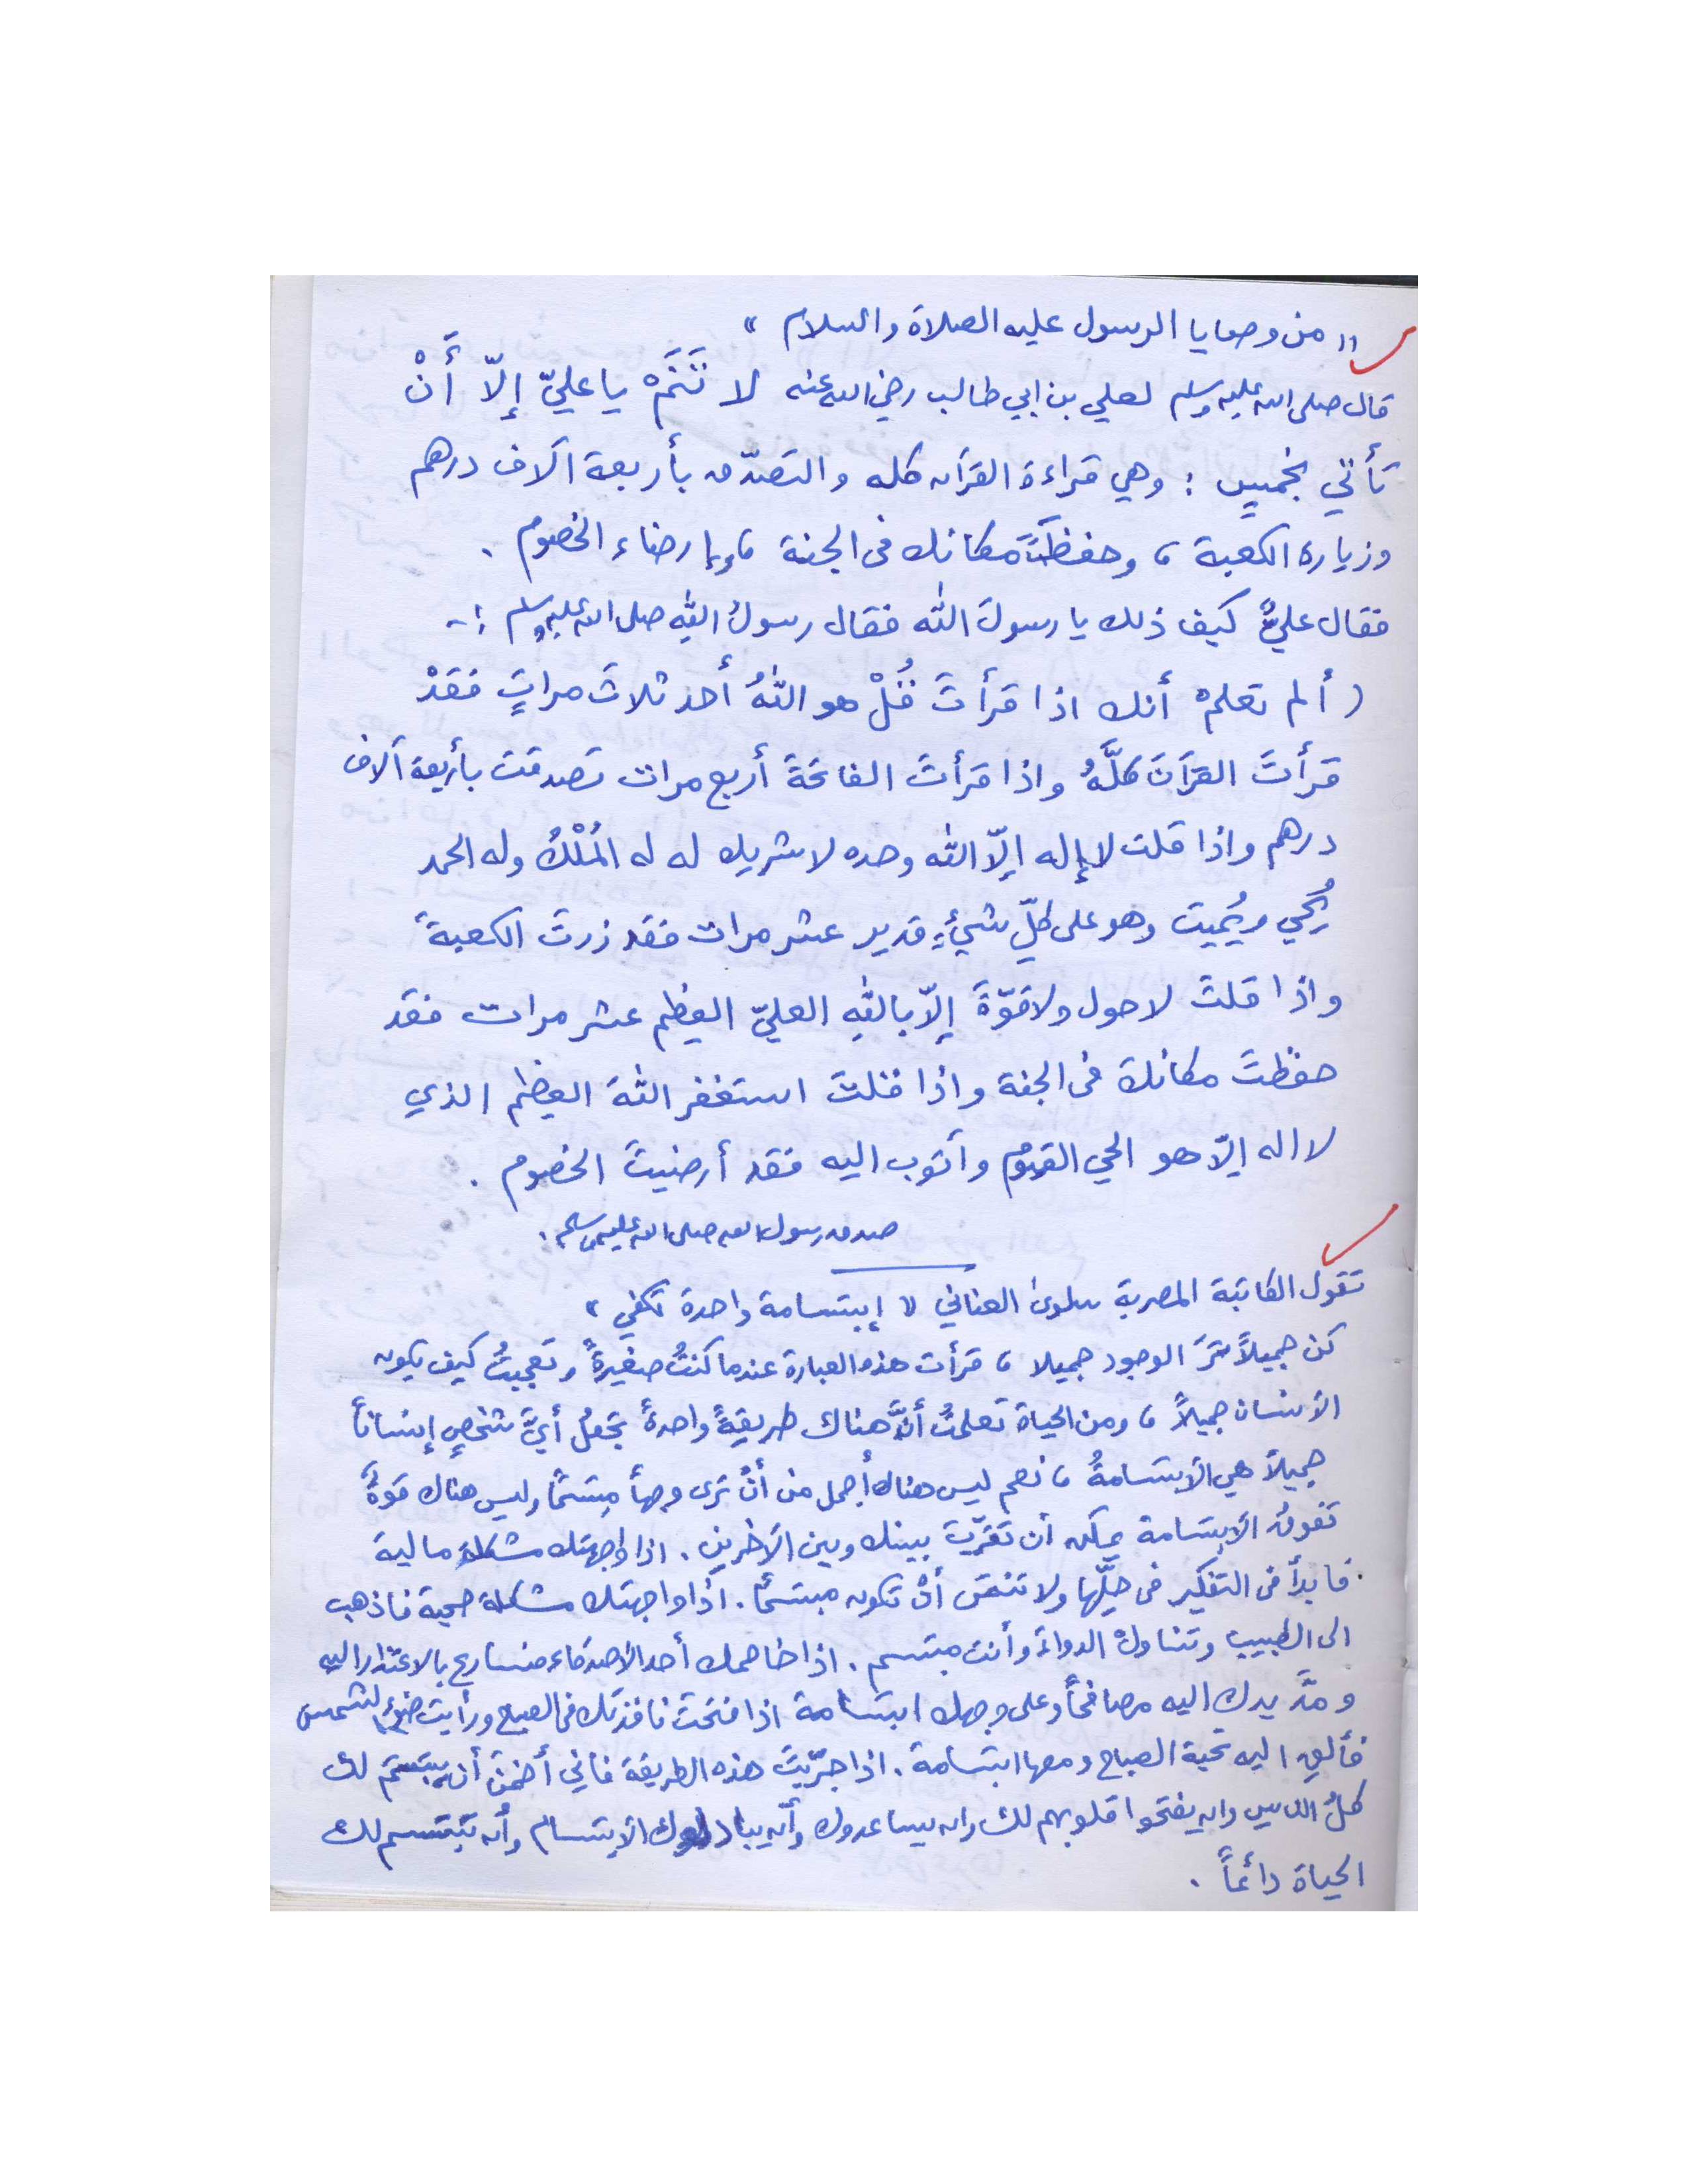 " من وصايا الرسول عليه الصلاة والسلام "
قال صلى الله عليه وسلم لعلي بن ابي طالب رضي الله عنه لا تَنَمْ يا عليّ إلاّ أَنْ
تأتي بخمسٍ : وهي قراءة القرآن كله والتصدّق بأربعة آلاف درهم
وزيارة الكعبة ، وحفظَ مكانك في الجنة ، وإرضاء الخصوم .
فقال عليٌّ كيف ذلك يا رسولَ الله فقال رسولُ اللهِ صلى الله عليه وسلم :-
( ألم تعلمْ أنك اذا قرأتَ قُلْ هو اللهُ أحد ثلاثَ مراتٍ فقدْ
قرأتَ القرآنَ كلَّهُ واذا قرأتَ الفاتحةَ أربع مرات تصدقت بأربعة آلاف
درهم واذا قلت لا إله إلاّ الله وحده لا شريك له له المُلْكُ وله الحمد
يُحيي ويُميت وهو على كلّ شيءٍ قدير عشر مرات فقد زرتَ الكعبةَ
واذا قلتَ لا حول ولا قوّةَ إلاّ باللهِ العليّ العظيم عشر مرات فقد
حفظتَ مكانك في الجنة واذا قلتَ استغفر اللهَ العظيم الذي
لا اله إلاّ هو الحي القيومُ وأتوب اليه فقد أرضيتَ الخصوم .
صدق رسول الله صلى الله عليه وسلم .
تقول الكاتبة المصرية سلوى العناني " إبتسامة واحدة تكفي "
كن جميلاً ترَ الوجود جميلا ، قرأت هذه العبارة عندما كنتُ صغيرةً وتعجبتُ كيف يكون
الأنسان جميلاً ، ومن الحياة تعلمتُ أنَّ هناك طريقةً واحدةً تجعلُ أيَّ شخصٍ إنساناً
جميلاً هي الأبتسامةُ ، نعم ليس هناك أجمل من أنْ ترى وجهاً مبتسماً وليس هناك قوةً
تفوقُ الأبتسامة يمكن أن تقرّب بينك وبين الآخرين . اذا واجهتك مشكلة مالية
فابدأ في التفكير في حلّها ولا تنسَ أنْ تكون مبتسماً . اذا واجهتك مشكلة صحية فاذهب
الى الطبيب وتناول الدواءَ وأنت مبتسم . اذا خاصمك أحد الأصدقاء فسارع بالاعتذار اليه
ومدَّ يدك اليه مصافحاً وعلى وجهك ابتسامة اذا فتحت نافذتك في الصبح ورأيت ضوء الشمس
فألقِ اليه تحية الصباح ومعها ابتسامة . اذا جرّبتَ هذه الطريقة فاني أضمنُ أن يبتسم لك
كلُ الناس وان يفتحوا قلوبهم لك وان يساعدوك وأن يبادلوك الأبتسام وأن تبتسم لك
الحياة دائماً .